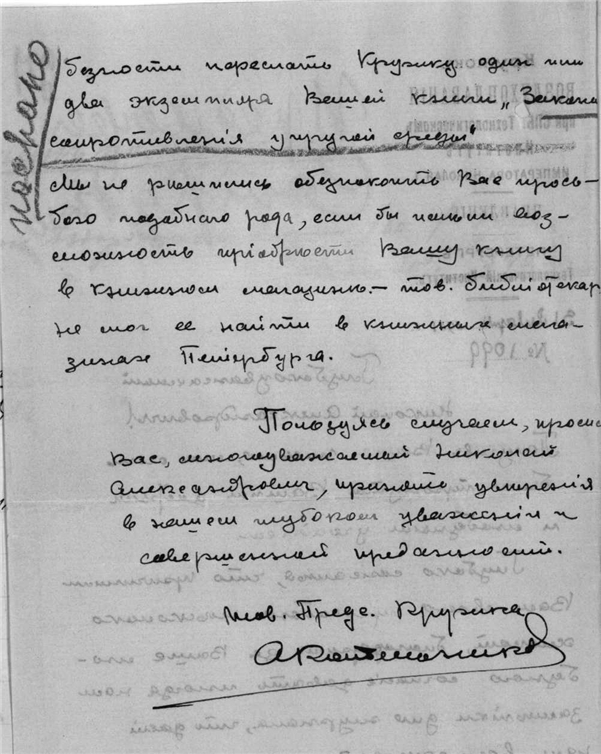 послано
безности переслать Кружку один или
два экземпляра Вашей книги „Законы
сопротивленія упругой среды“
Мы не рѣшились обезпокоить Васъ прось-
бою подобнаго рода, если бы нашли воз-
можность пріобрѣсти Вашу книгу
в книжном магазинѣ. – тов. библіотекар
не мог ее найти в книжных мага-
зинах Петербурга.
Пользуясь случаем, просим
Вас, многоуважаемый Николай
Александрович, принять увѣренія
в нашем глубоком уваженіи и
совершенной преданности.
Тов. Предс. Кружка
№ 1099